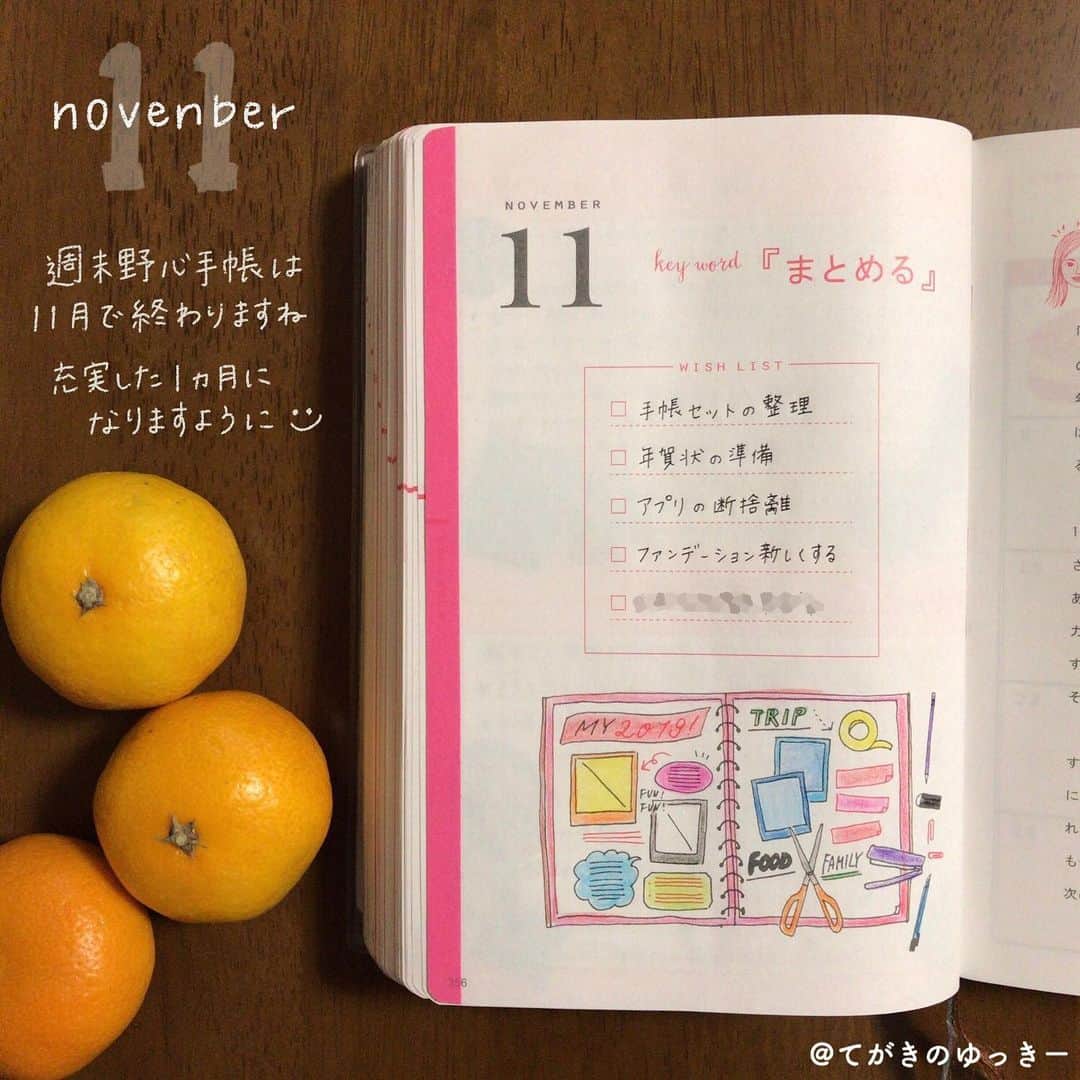 11
novenber
週末野心手帳は
11月で終わりますね
充実した1ヵ月に
なりますように
NOVEMBER
11
key word 『まとめる』
WISH LIST
手帳セットの整理
年賀状の準備
アプリの断捨離
ファンデーション新しくする
MY 2019!
FUN!
FUN!
TRIP
FOOD
FAMILY
356
@てがきのゆっきー